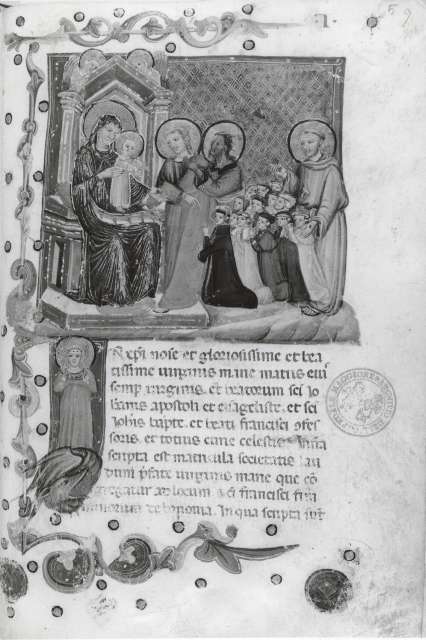 ·I·
N xpi noīe et gloriosissime et bea
tissime uirginis marie matris eiꝰ
semp uirginis et beatorum sci Jo
hanis apostoli et euãgeliste et sci
Johis bapte et beati francisci ꝯfes
soris et totius curie celestis Infra
scripta est matricula societatis lau
dum pfate uirginis marie que cõ
gregatur locum sci francisci fra
minorum de bononia. In qua scripta sūt